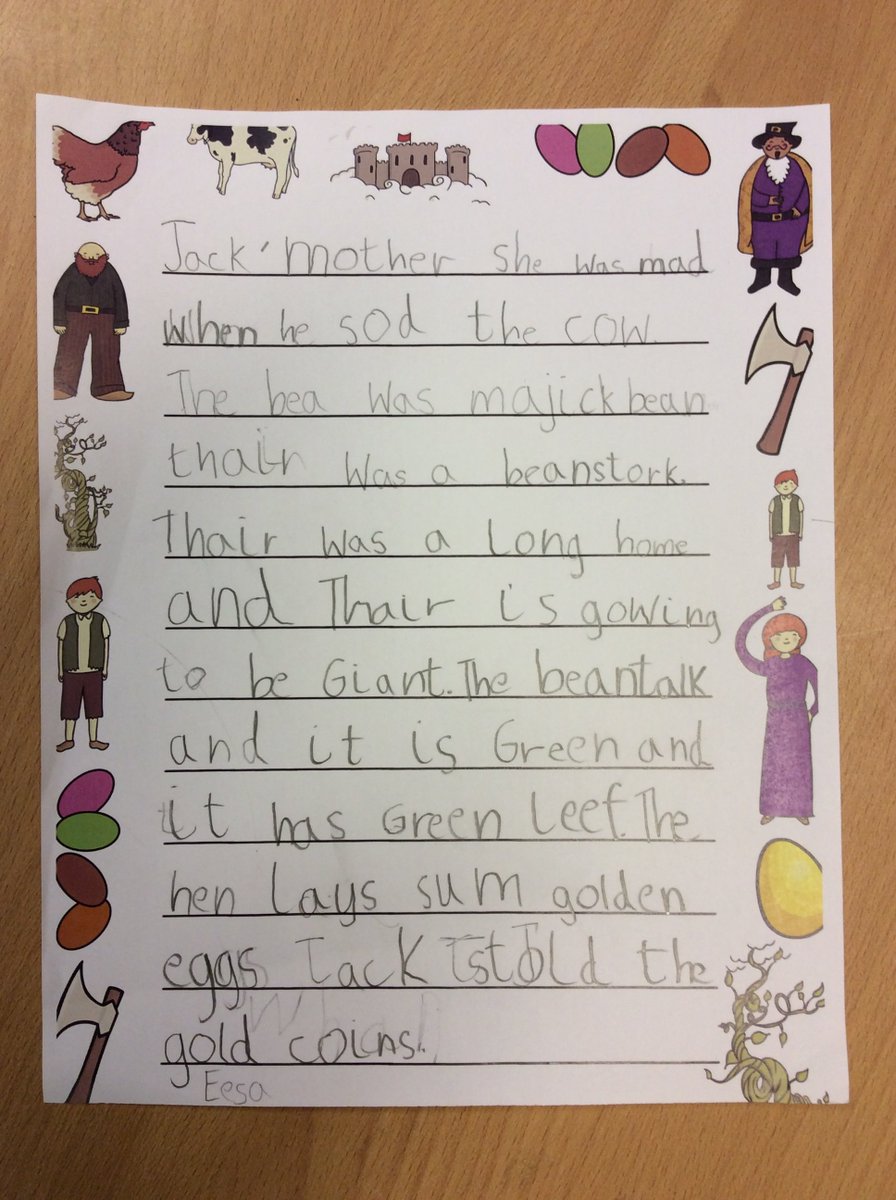 Jack' mother she was mad
when he sod the cow.
The bea was majick bean
thair was a beanstork.
Thair was a long home
and Thair is gowing
to be Giant. The beantalk
and it is Green and
it has Green leef. The
hen lays sum golden
eggs Jack stold the
gold coins.
Eesa